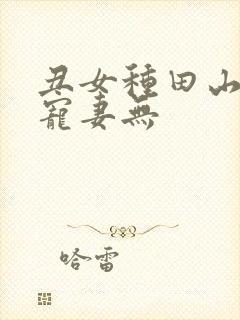 丑女種田山
寵妻無
哈雷